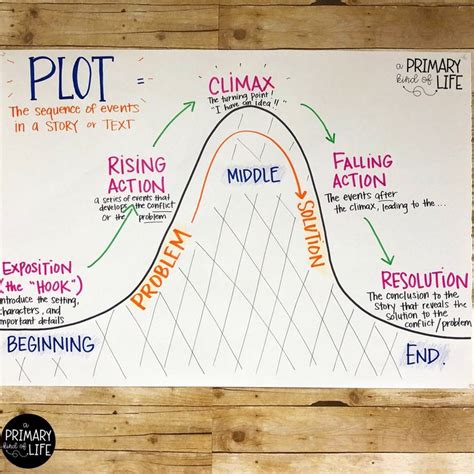 PLOT =
The sequence of events
in a STORY or TEXT
a
PRIMARY
kind of
LIFE
CLIMAX
The turning point!
"I have an idea!!"
RISING
ACTION
a series of events that
develops the conflict
Or the problem
MIDDLE
PROBLEM
SOLUTION
FALLING
ACTION
The events after
the climax, leading to the...
EXPOSITION
(the "HOOK")
introduce the setting,
characters, and
important details
BEGINNING
RESOLUTION
The conclusion to the
story that reveals the
solution to the
conflict/problem
END.
a
PRIMARY
kind of
LIFE